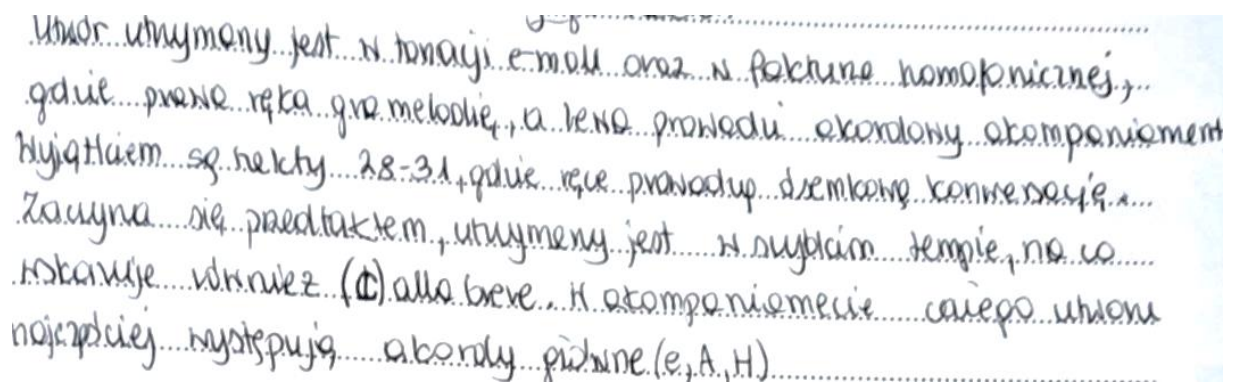 Utwór utrzymany jest w tonacji e-moll oraz w fakturze homofonicznej,
gdzie prawa ręka gra melodię, a lewa prowadzi akordowy akompaniament
Wyjątkiem są takty 28-31, gdzie ręce prowadzą konwersację.
Zaczyna się przedtaktem, utrzymany jest w szybkim tempie, na co
wskazuje również (¢) alla breve. W akompaniamecie całego utworu
najczęściej występują akordy główne (e, A, H)